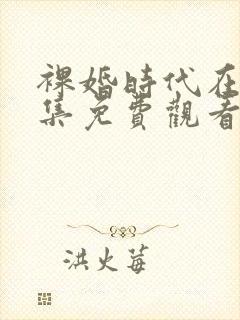 裸婚時代在
集免費觀看
洪火莓